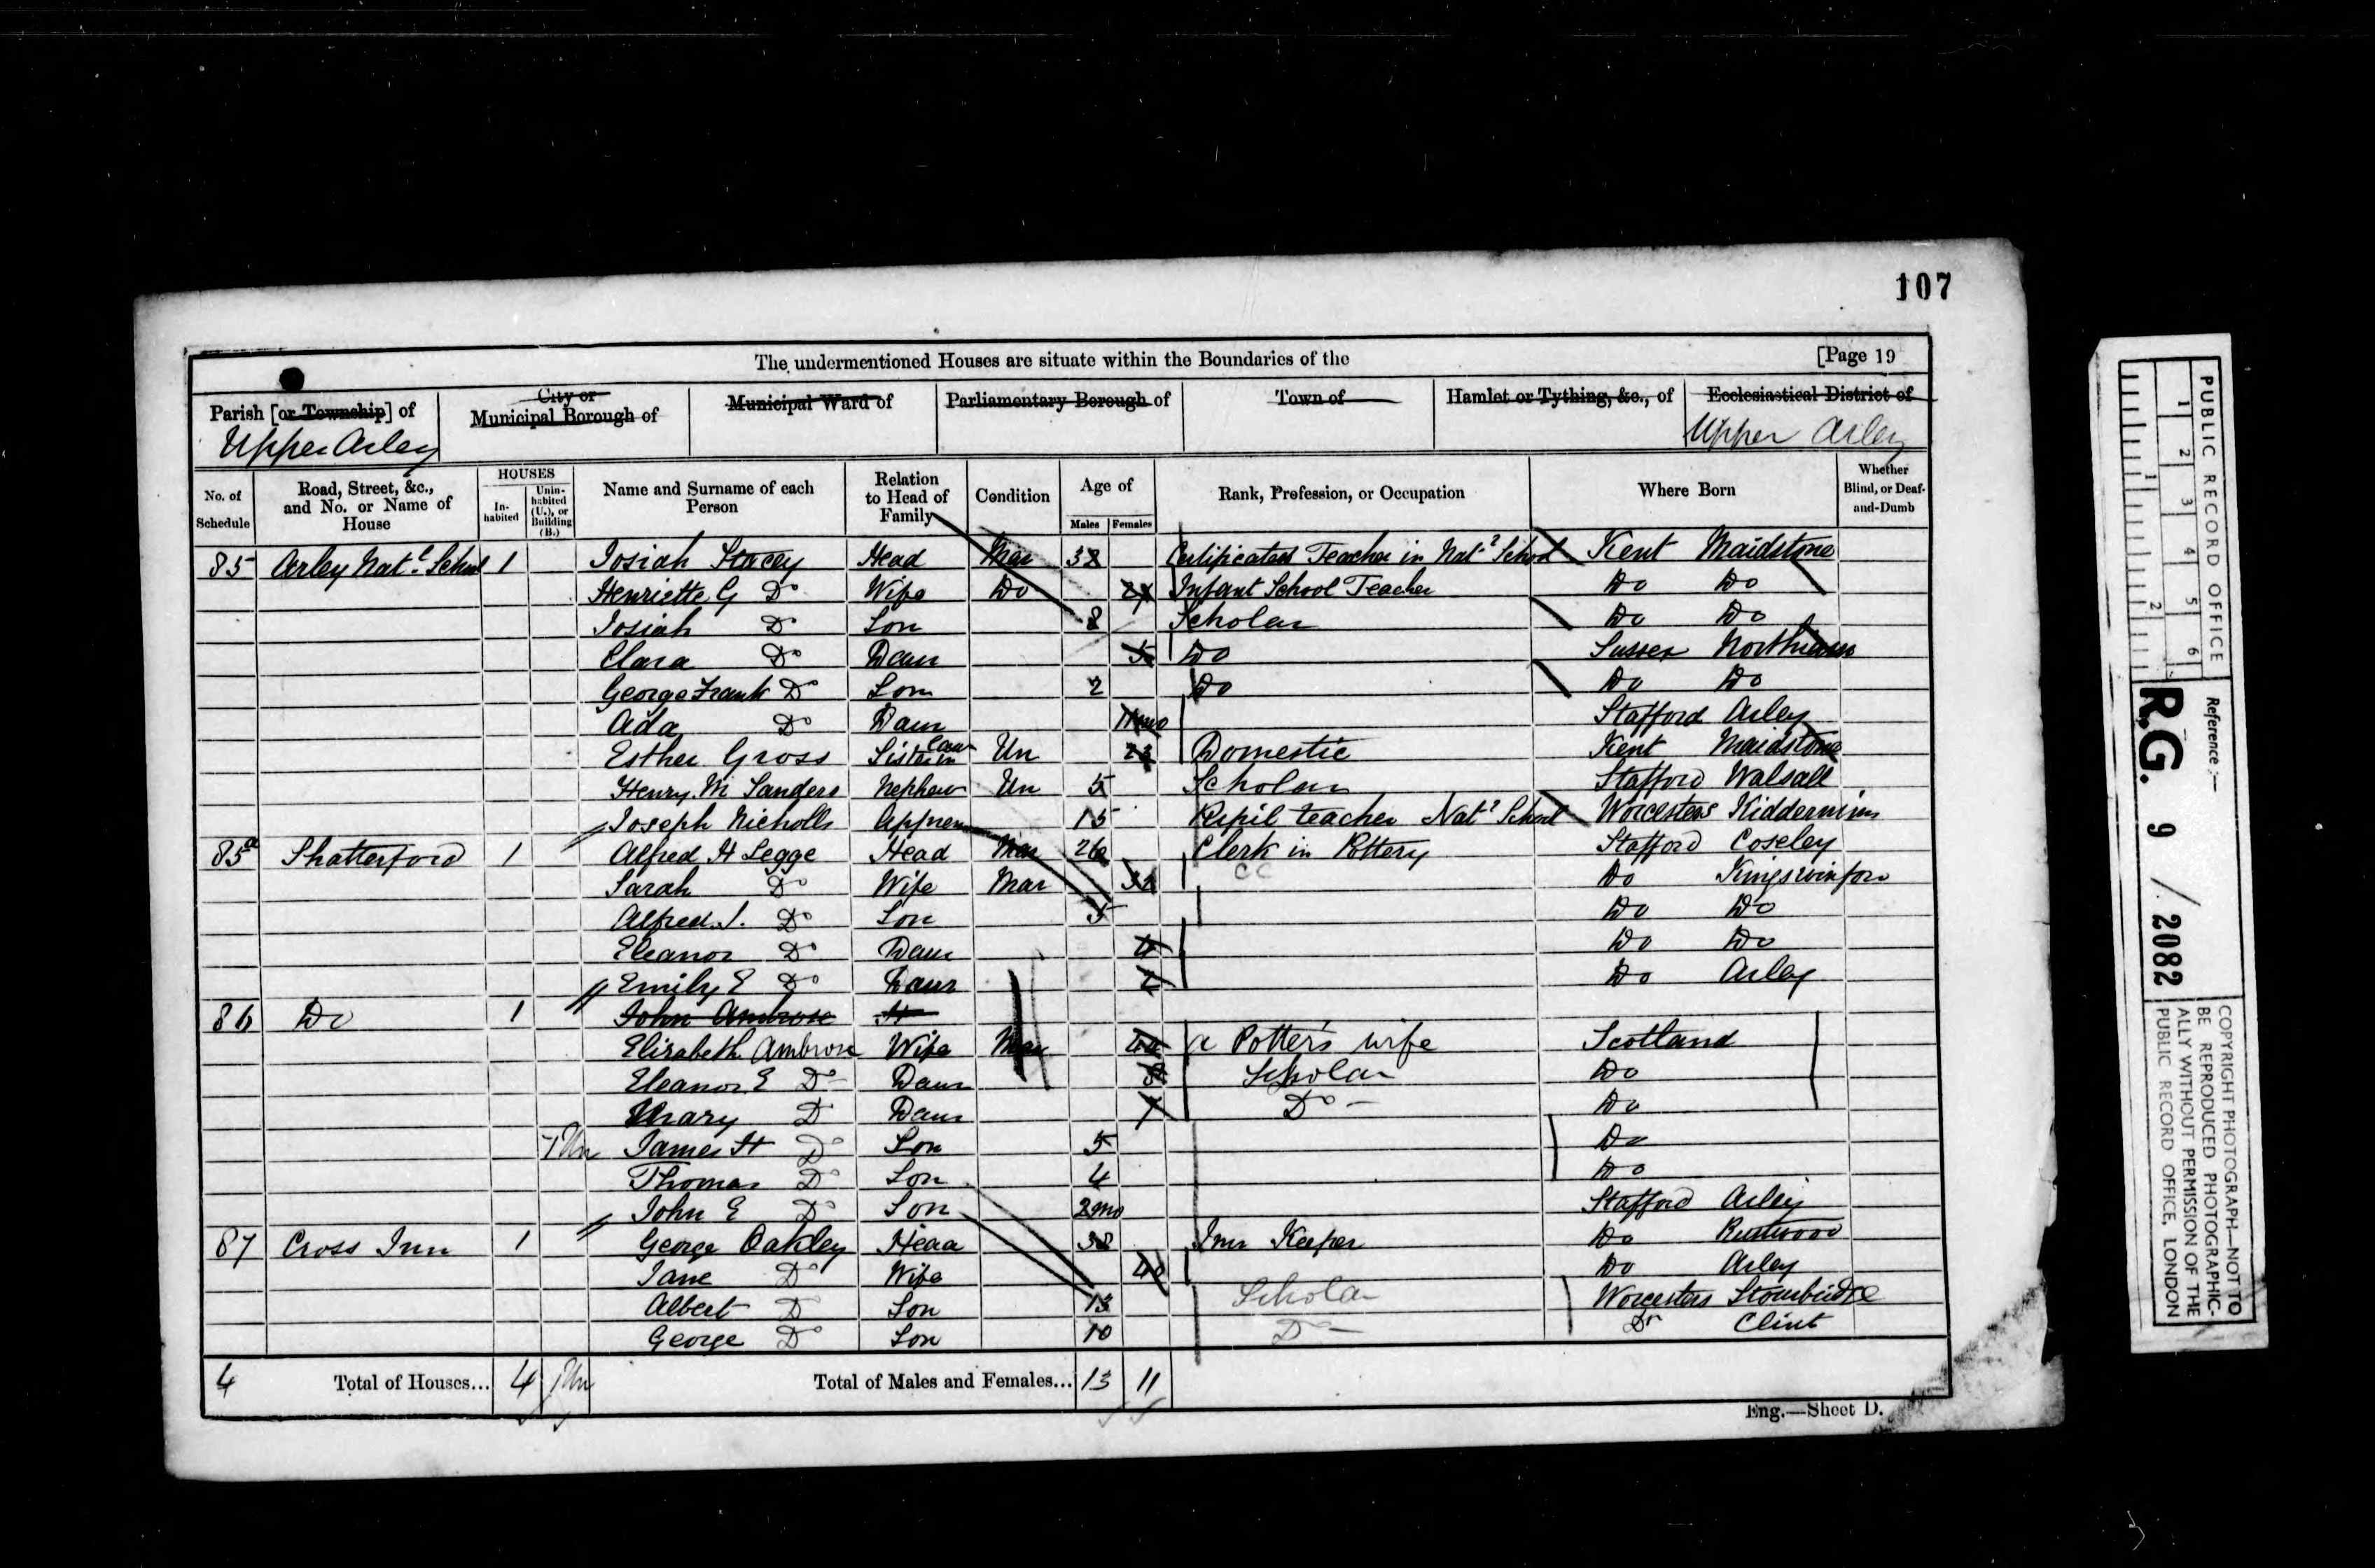 107
The undermentioned Houses are situate within the Boundaries of the [Page 19
Parish [or Township] of City or Municipal Borough of Municipal Ward of Parliamentary Borough of Town of Hamlet or Tything, &c., of Ecclesiastical District of
Upper Arley Upper Arley
No. of Schedule Road, Street, &c., and No. or Name of House HOUSES In-habited Unin-habited (U.), or Building (B.) Name and Surname of each Person Relation to Head of Family Condition Age of Males Females Rank, Profession, or Occupation Where Born Whether Blind, or Deaf-and-Dumb
85 Arley Natl School 1 Josiah Stacey Head Mar 32 Certificated Teacher in Natl School Kent Maidstone
Henriette G Do Wife Do Infant School Teacher Do Do
Josiah Do Son 8 Scholar Do Do
Clara Do Daur 5 Do Sussex
George Frank Do Son 2 Do Do Do
Ada Do Daur 11mo Stafford Arley
Esther Gross Sister in law Un 23 Domestic Kent Maidstone
Henry M Sanders Nephew Un 5 Scholar Stafford Walsall
Joseph Nicholls Appren 15 Pupil teacher Natl School Worcesters Kiddermins
85a Shatterford 1 Alfred H Legge Head Mar 26 Clerk in Pottery Stafford Coseley
Sarah Do Wife Mar 32 Do Kingswinford
Alfred J. Do Son 5 Do Do
Eleanor Do Daur 4 Do Do
Emily E Do Daur 2 Do Arley
86 Do 1 John Ambrose H
Elizabeth Ambrose Wife Mar 44 a Potter's wife Scotland
Eleanor E Do Daur 8 Scholar Do
Mary D Daur 7 Do Do
James H Do Son 5 Do
Thomas Do Son 4 Do
John E Do Son 2mo Stafford Arley
87 Cross Inn 1 George Oakley Head 38 Inn Keeper Do
Jane Do Wife 40 Do Arley
Albert D Son 13 Scholar Worcesters Stourbridge
George Do Son 10 Do Do Clint
4 Total of Houses... 4 Total of Males and Females... 13 11
Eng.—Sheet D.
PUBLIC RECORD OFFICE
1 2 3 4 5 6
1 2
Reference:—
R.G. 9 / 2082
COPYRIGHT PHOTOGRAPH—NOT TO
BE REPRODUCED PHOTOGRAPHIC-
ALLY WITHOUT PERMISSION OF THE
PUBLIC RECORD OFFICE, LONDON